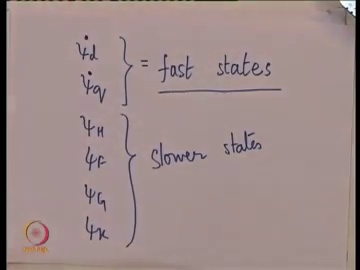 ψ̇d
ψ̇q } = fast states
ψH
ψF
ψG } slower states
ψK